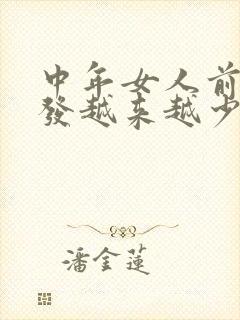 中年女人前
發越来越少
潘金蓮